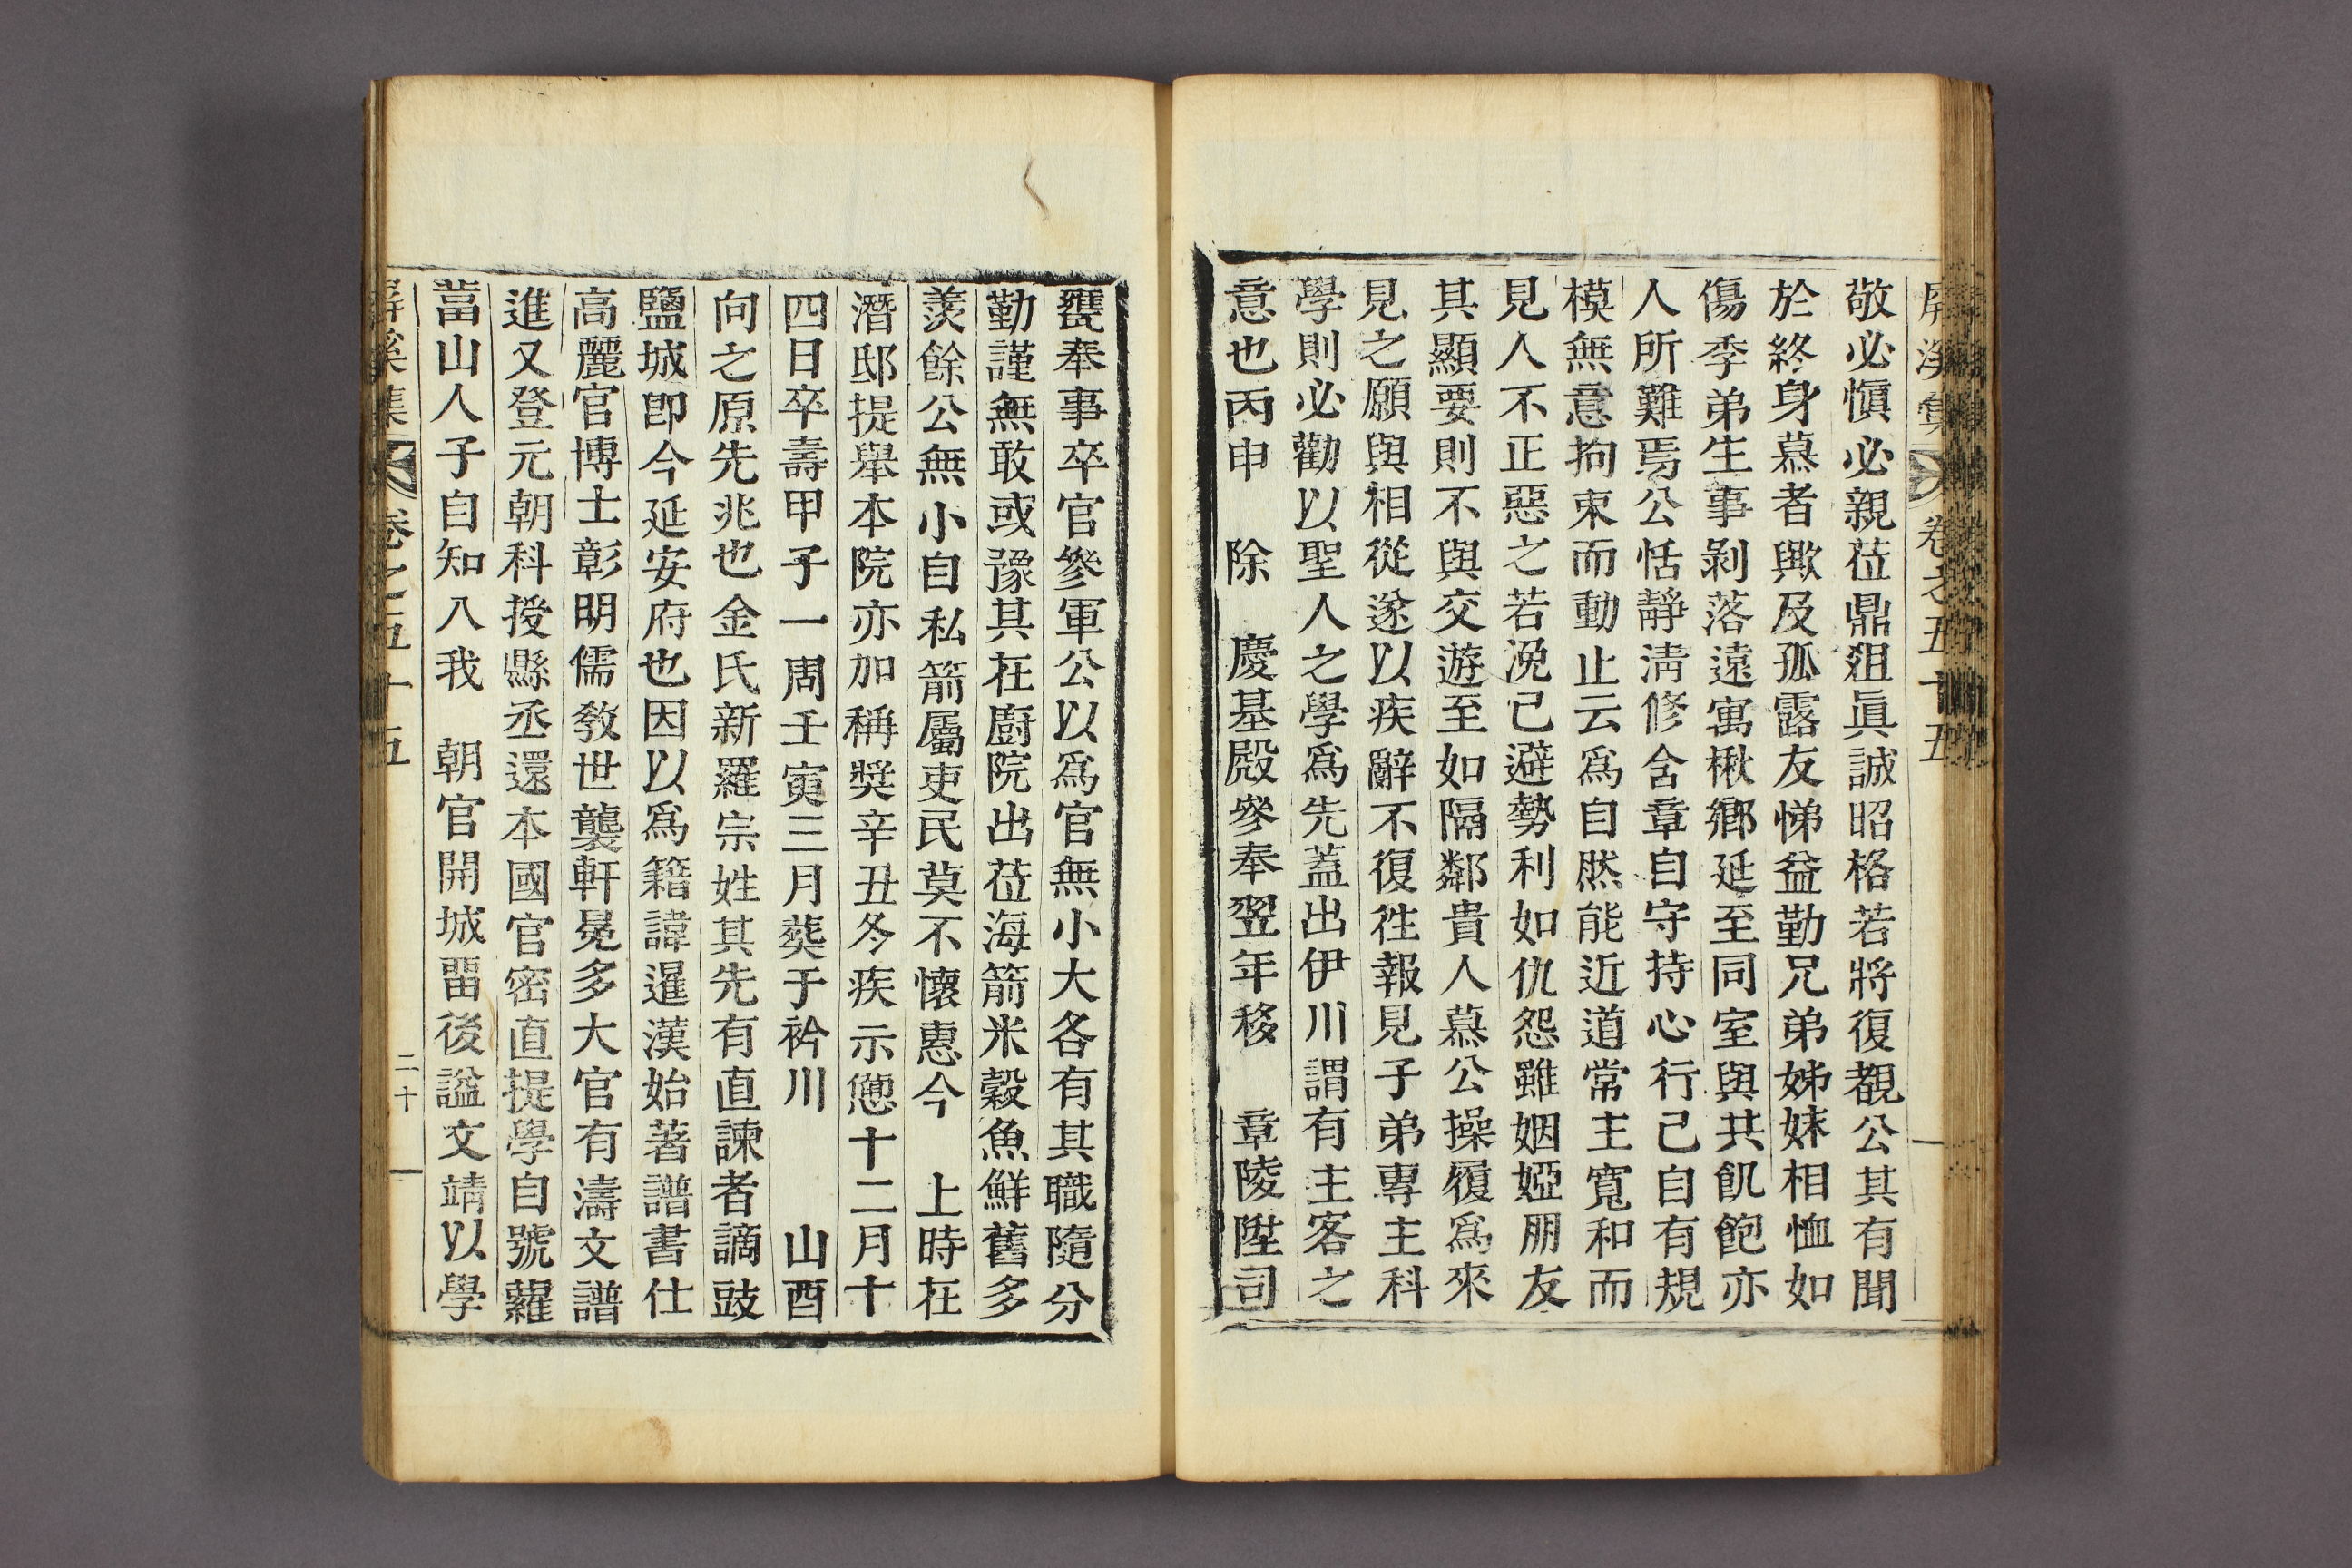 屛溪集 卷之五十五
敬必愼必親莅鼎俎眞誠昭格若將復覩公其有聞
於終身慕者歟及孤露友悌益勤兄弟姊妹相恤如
傷季弟生事剝落遠寓楸鄕延至同室與共飢飽亦
人所難焉公恬靜淸修含章自守持心行己自有規
模無意拘束而動止云爲自然能近道常主寬和而
見人不正惡之若浼己避勢利如仇怨雖姻婭朋友
其顯要則不與交遊至如隔鄰貴人慕公操履爲來
見之願與相從遂以疾辭不復徃報見子弟專主科
學則必勸以聖人之學爲先蓋出伊川謂有主客之
意也丙申 除 慶基殿參奉翌年移 章陵陞司
甕奉事卒官參軍公以爲官無小大各有其職隨分
勤謹無敢或豫其在廚院出莅海箭米穀魚鮮舊多
羨餘公無小自私箭屬吏民莫不懷惠今 上時在
潛邸提舉本院亦加稱奬辛丑冬疾示憊十二月十
四日卒壽甲子一周壬寅三月葬于衿川 山酉
向之原先兆也金氏新羅宗姓其先有直諫者謫豉
鹽城卽今延安府也因以爲籍諱暹漢始著譜書仕
高麗官博士彰明儒敎世襲軒冕多大官有濤文譜
進又登元朝科授縣丞還本國官密直提學自號蘿
葍山人子自知入我 朝官開城畱後謚文靖以學
屛溪集 卷之五十五 二十